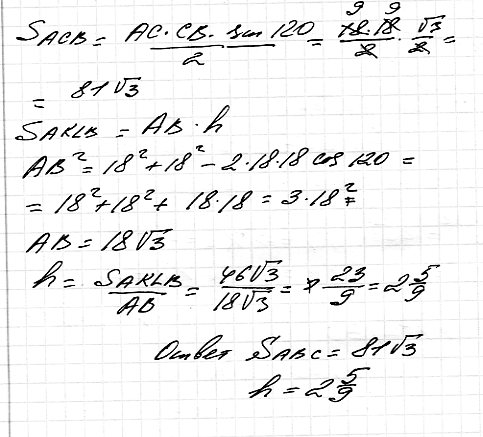 S_ACB = AC·CB·sin 120 / 2 = 18·18 / 2 · √3 / 2 =
9 9
= 81√3
S_AKLB = AB·h
AB² = 18² + 18² − 2·18·18 cos 120 =
= 18² + 18² + 18·18 = 3·18² =
AB = 18√3
h = S_AKLB / AB = 46√3 / 18√3 = 23 / 9 = 2 5/9
Ответ S_ABC = 81√3
h = 2 5/9